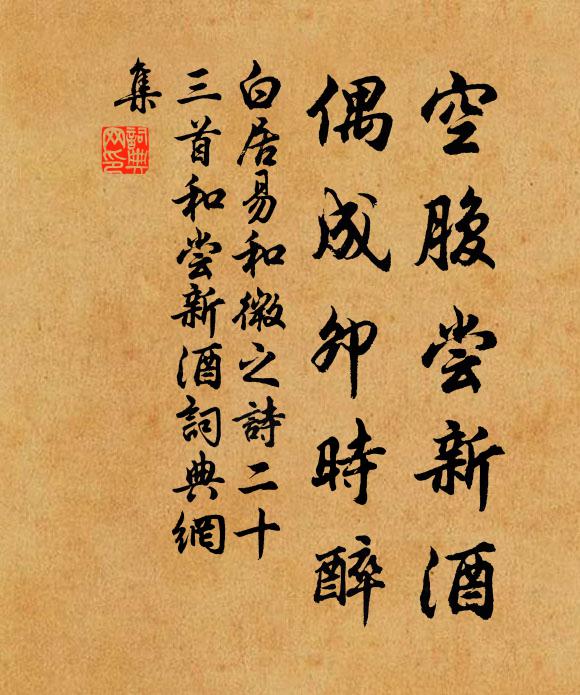 空腹尝新酒
偶成卯時醉
白居易和微之詩二十
三首和尝新酒詞典網
集
詞典网印